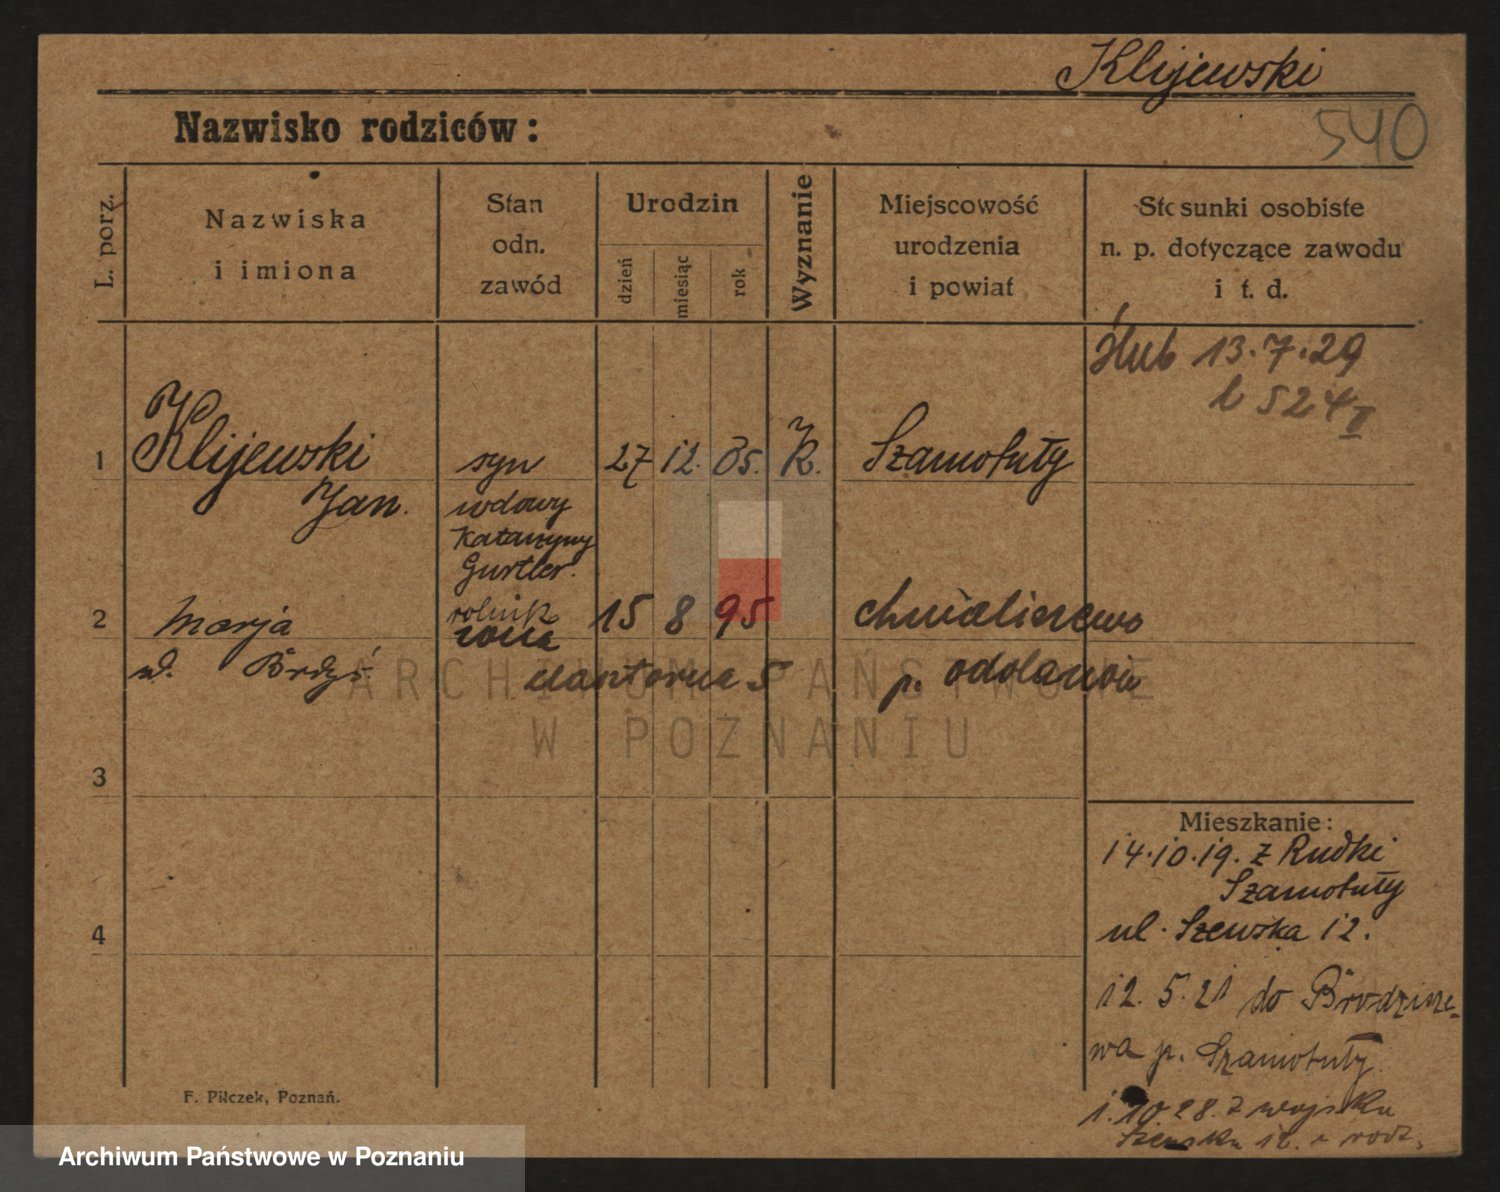 Klijewski
Nazwisko rodziców:
540
L. porz.
Nazwiska
i imiona
Stan
odn.
zawód
Urodzin
dzień
miesiąc
rok
Wyznanie
Miejscowość
urodzenia
i powiat
Stosunki osobiste
n. p. dotyczące zawodu
i t. d.
Ślub 13.7.29
l 524 II
1 Klijewski syn 27 12. 05. K. Szamotuły
Jan. wdowy
Katarzyny
Gurtler.
rolnik
2 Marja żona 15 8 95 Chwaliszewo
ul. 5 p. Odolanów
ARCHIWUM PAŃSTWOWE
W POZNANIU
3
4
Mieszkanie:
14.10.19. z Rudki
Szamotuły
ul. Szewska 12.
12.5.21 do Brodzisze-
wa p. Szamotuły.
1.10 28. z wojska
Szewska 12. rodz.
F. Pilczek, Poznań.
Archiwum Państwowe w Poznaniu